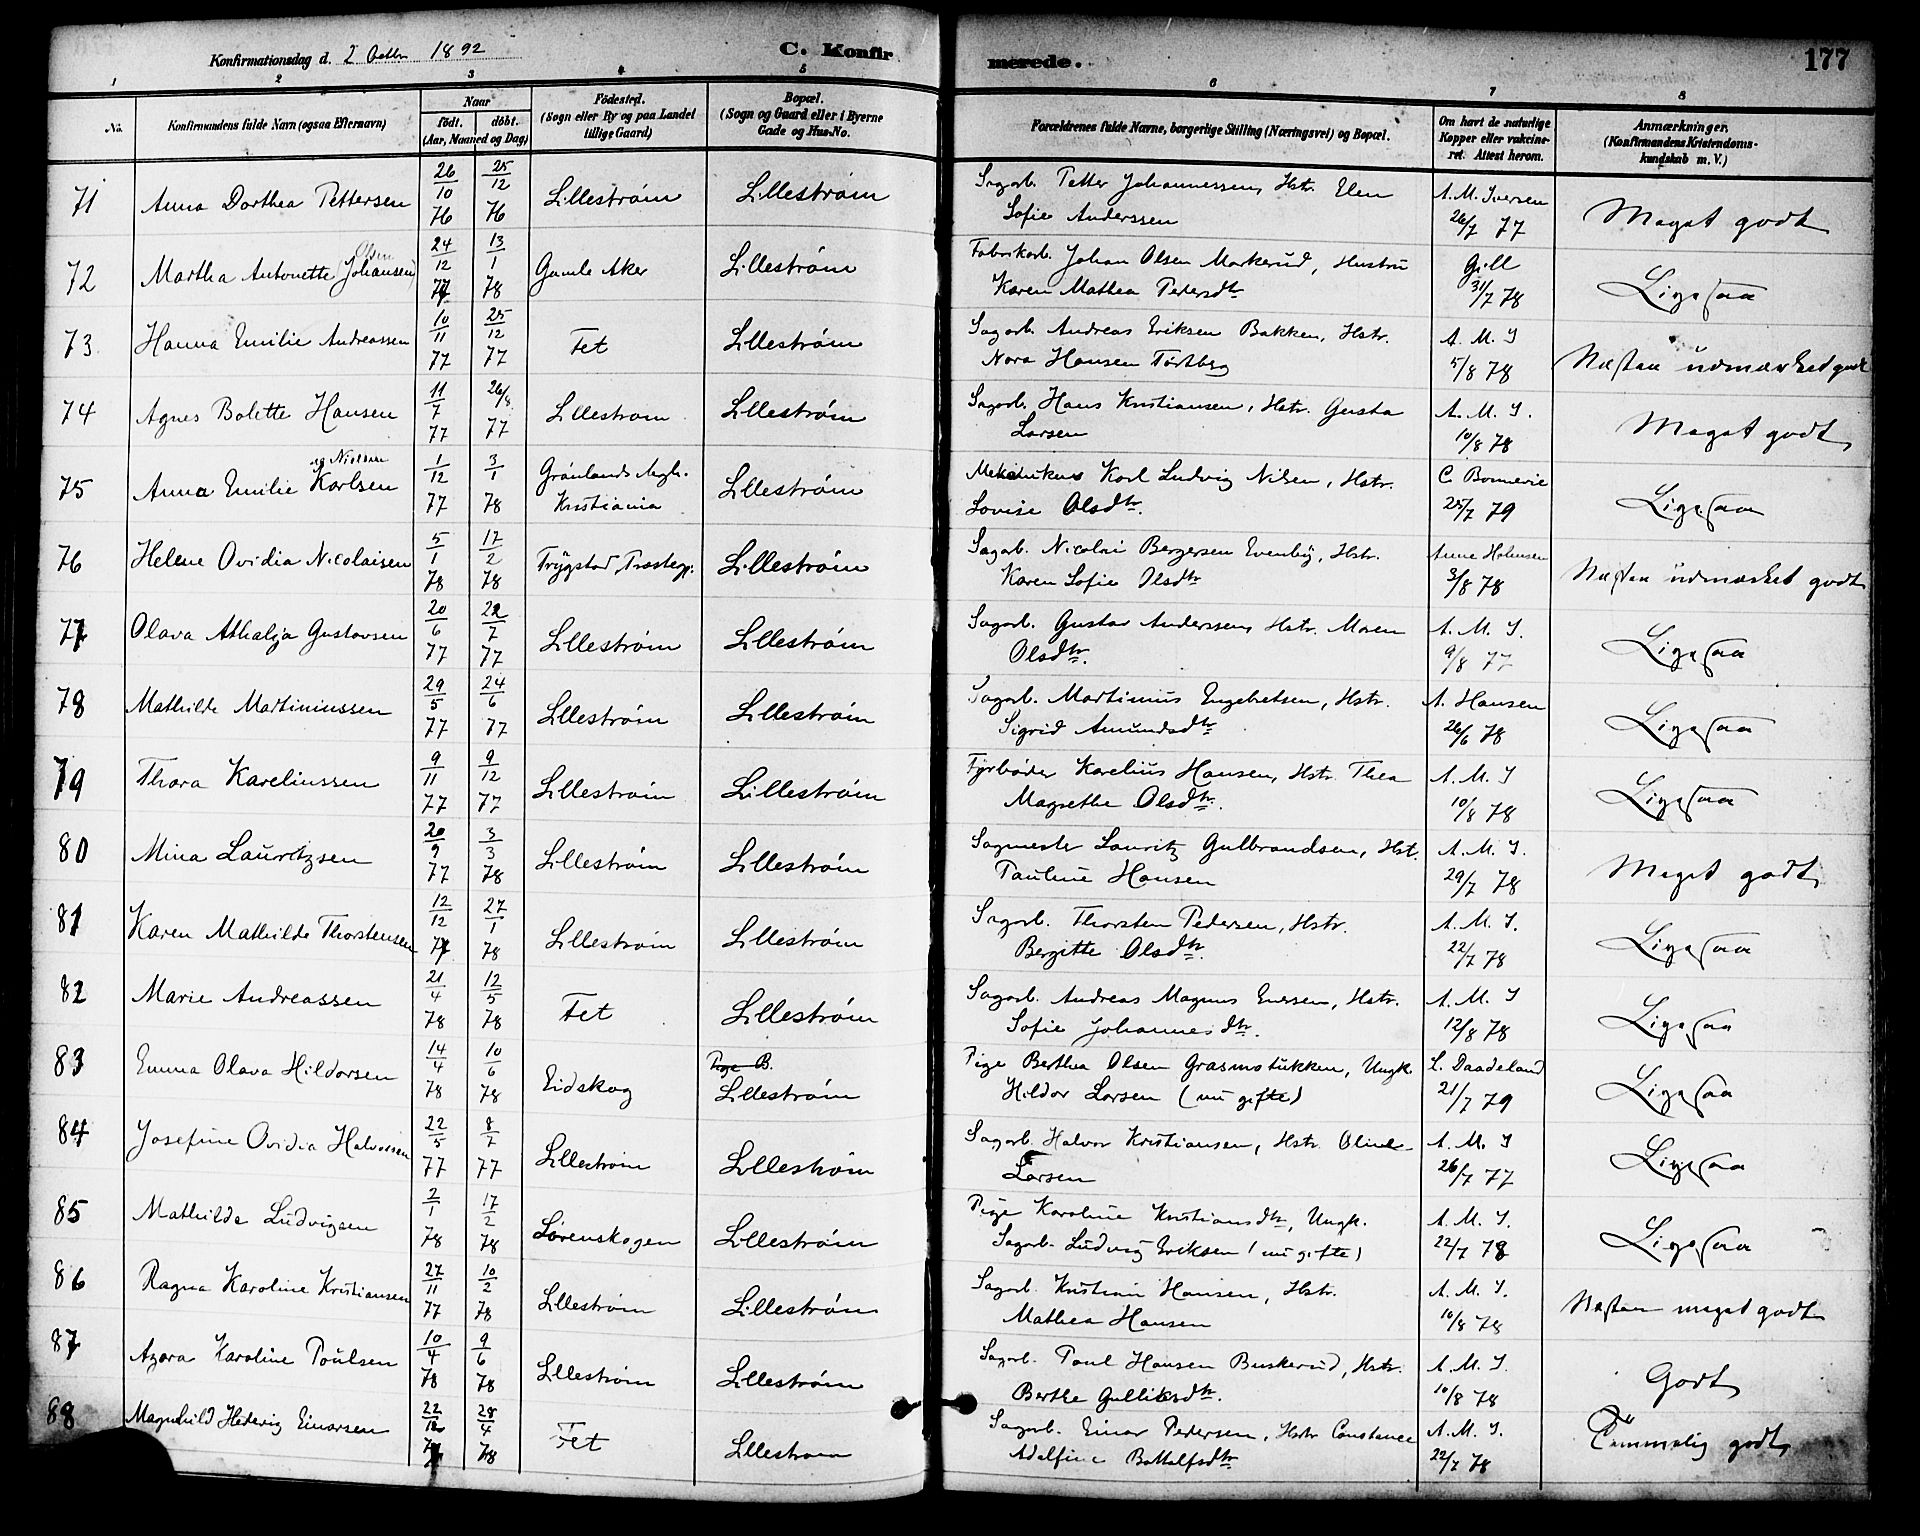 Konfirmationsdag d. 2 Octbr 1892
C. Konfirmerede.
177
1 2 3 4 5 6 7 8
No.
Konfirmandens fulde Navn (ogsaa Efternavn)
Naar
født. døbt.
(Aar, Maaned og Dag)
Fødested.
(Sogn eller By og paa Landet
tillige Gaard)
Bopæl.
(Sogn og Gaard eller i Byerne
Gade og Hus-No.
Forældrenes fulde Navne, borgerlige Stilling (Næringsvei) og Bopæl.
Om havt de naturlige
Kopper eller vakcine-
ret. Attest herom.
Anmærkninger.
(Konfirmandens Kristendoms-
kundskab m. V.)
71 Anna Dorthea Pettersen 26/10 76 25/12 76 Lillestrøm Lillestrøm Sagarb. Petter Johannessen, Hstr. Elen
Sofie Anderssen A. M. Iversen 26/7 77 Meget godt
72 Martha Antonette (Johansen) Olsen 24/12 77 13/1 78 Gamle Aker Lillestrøm Fabrikarb. Johan Olsen Markerud, Hustru
Karen Mathea Pedersdtr Gill 31/7 78 Ligesaa
73 Hanna Emilie Andreassen 10/11 77 25/12 77 Fet Lillestrøm Sagarb. Andreas Eriksen Bakken, Hstr.
Nora Hansen Tørtberg A. M. I 5/8 78 Næsten udmærket godt
74 Agnes Bolette Hansen 11/7 77 26/8 77 Lillestrøm Lillestrøm Sagarb. Hans Kristiansen, Hstr. Gusta
Larsen A. M. I. 10/8 78 Meget godt
75 Anna Emilie Karlsen og Nielsen 1/12 77 3/1 78 Grønlands Mgh.
Kristiania Lillestrøm Mekanikus Karl Ludvig Nilsen, Hstr.
Lovise Olsdtr. C. Bonnevie 25/7 79 Ligesaa
76 Helene Ovidia Nicolaisen 5/1 78 17/2 78 Trygstad Præstegj. Lillestrøm Sagarb. Nicolai Bergersen Evenby, Hstr.
Karen Sofie Olsdtr Anne Holmsen 3/8 78 Næsten udmærket godt
77 Olava Athalja Gustavsen 20/6 77 22/7 77 Lillestrøm Lillestrøm Sagarb. Gustav Anderssen, Hstr. Maren
Olsdtr. A. M. I. 9/8 77 Ligesaa
78 Mathilde Martiniussen 29/5 77 24/6 77 Lillestrøm Lillestrøm Sagarb. Martinius Engebretsen, Hstr.
Sigrid Amundsdtr A. Hansen 26/6 78 Ligesaa
79 Thora Kareliussen 9/11 77 9/12 77 Lillestrøm Lillestrøm Fyrbøder Karelius Hansen, Hstr. Thea
Magrethe Olsdtr. A. M. I 10/8 78 Ligesaa
80 Mina Lauritzsen 20/9 77 3/3 78 Lillestrøm Lillestrøm Sagmester Lauritz Gulbrandsen, Hst.
Pauline Hansen A. M. I. 29/7 78 Meget godt
81 Karen Mathilde Thorstensen 12/12 77 27/1 78 Lillestrøm Lillestrøm Sagarb. Thorsten Pedersen, Hstr.
Bergitte Olsdtr. A. M. I. 22/7 78 Ligesaa
82 Marie Andreassen 21/4 78 12/5 78 Fet Lillestrøm Sagarb. Andreas Magnus Enersen, Hstr.
Sofie Johannesdtr. A. M. I 12/8 78 Ligesaa
83 Emma Olava Hildorsen 14/4 78 10/6 78 Eidskog Pige B.
Lillestrøm Pige Berthea Olsen Grasmostukken, Ungk.
Hildor Larsen (nu gifte) L. Daadeland 21/7 79 Ligesaa
84 Josefine Ovidia Halvorsen 22/5 77 8/7 77 Lillestrøm Lillestrøm Sagarb. Halvor Kristiansen, Hstr. Oline
Larsen A. M. I 26/7 77 Ligesaa
85 Mathilde Ludvigsen 2/1 78 17/2 78 Lørenskogen Lillestrøm Pige Karoline Kristiansdtr, Ungk.
Sagarb. Ludvig Eriksen (nu gifte) A. M. I. 22/7 78 Ligesaa
86 Ragna Karoline Kristiansen 27/11 77 10/2 78 Lillestrøm Lillestrøm Sagarb. Kristian Hansen, Hstr.
Mathea Hansen A. M. I. 10/8 78 Næsten meget godt
87 Azora Karoline Poulsen 10/4 78 9/6 78 Lillestrøm Lillestrøm Sagarb. Paul Hansen Buskerud, Hstr.
Berthe Gulliksdtr. A. M. I. 10/8 78 Godt
88 Magnhild Hedevig Einarsen 22/12 77 28/4 78 Fet Lillestrøm Sagarb. Einar Pedersen, Hstr Constance
Adelfine Bottolfsdtr A. M. I. 22/7 78 Temmelig godt